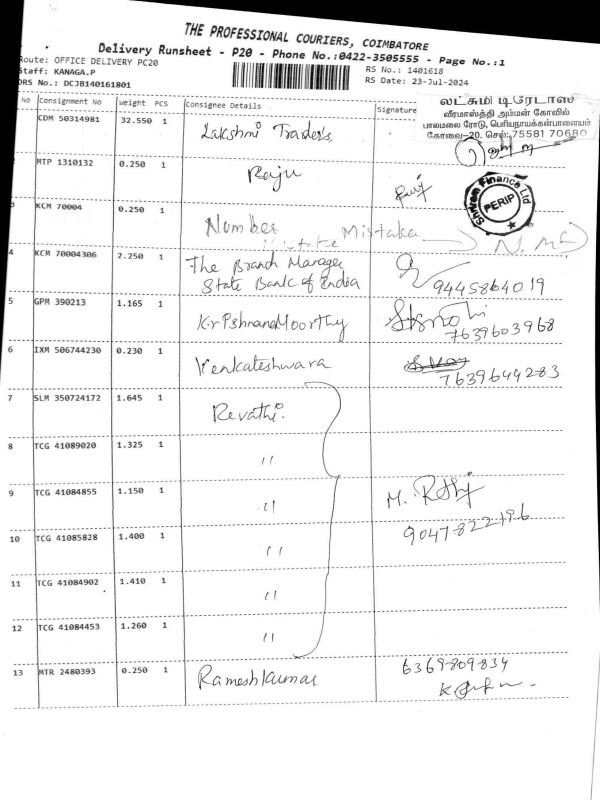 THE PROFESSIONAL COURIERS, COIMBATORE
Delivery Runsheet - P20 - Phone No.:0422-3505555 - Page No.:1
Route: OFFICE DELIVERY PC20
RS No.: 1401618
Staff: KANAGA.P
RS Date: 23-Jul-2024
DRS No.: DCJB140161801
No Consignment No Weight PCS Consignee Details Signature
லட்சுமி டிரேடர்ஸ்
வீரமாஸ்த்தி அம்மன் கோவில்
பாலமலை ரோடு, பெரியநாயக்கன்பாளையம்
கோவை-20. செல்: 75581 70680
CDM 50314981 32.550 1 Lakshmi Traders
MTP 1310132 0.250 1 Raju
Shriram Finance Ltd
PERIP
3 KCM 70004 0.250 1 Number Mistake
4 KCM 70004306 2.250 1 The Branch Manager
State Bank of India 9445864019
5 GPM 390213 1.165 1
7639603968
6 IXM 506744230 0.230 1 Venkateshwara
7639644283
7 SLM 350724172 1.645 1 Revathi.
8 TCG 41089020 1.325 1 "
9 TCG 41084855 1.150 1 "
10 TCG 41085828 1.400 1 "
11 TCG 41084902 1.410 1 "
12 TCG 41084453 1.260 1 "
13 MTR 2480393 0.250 1 Rameshkumar 6369809834